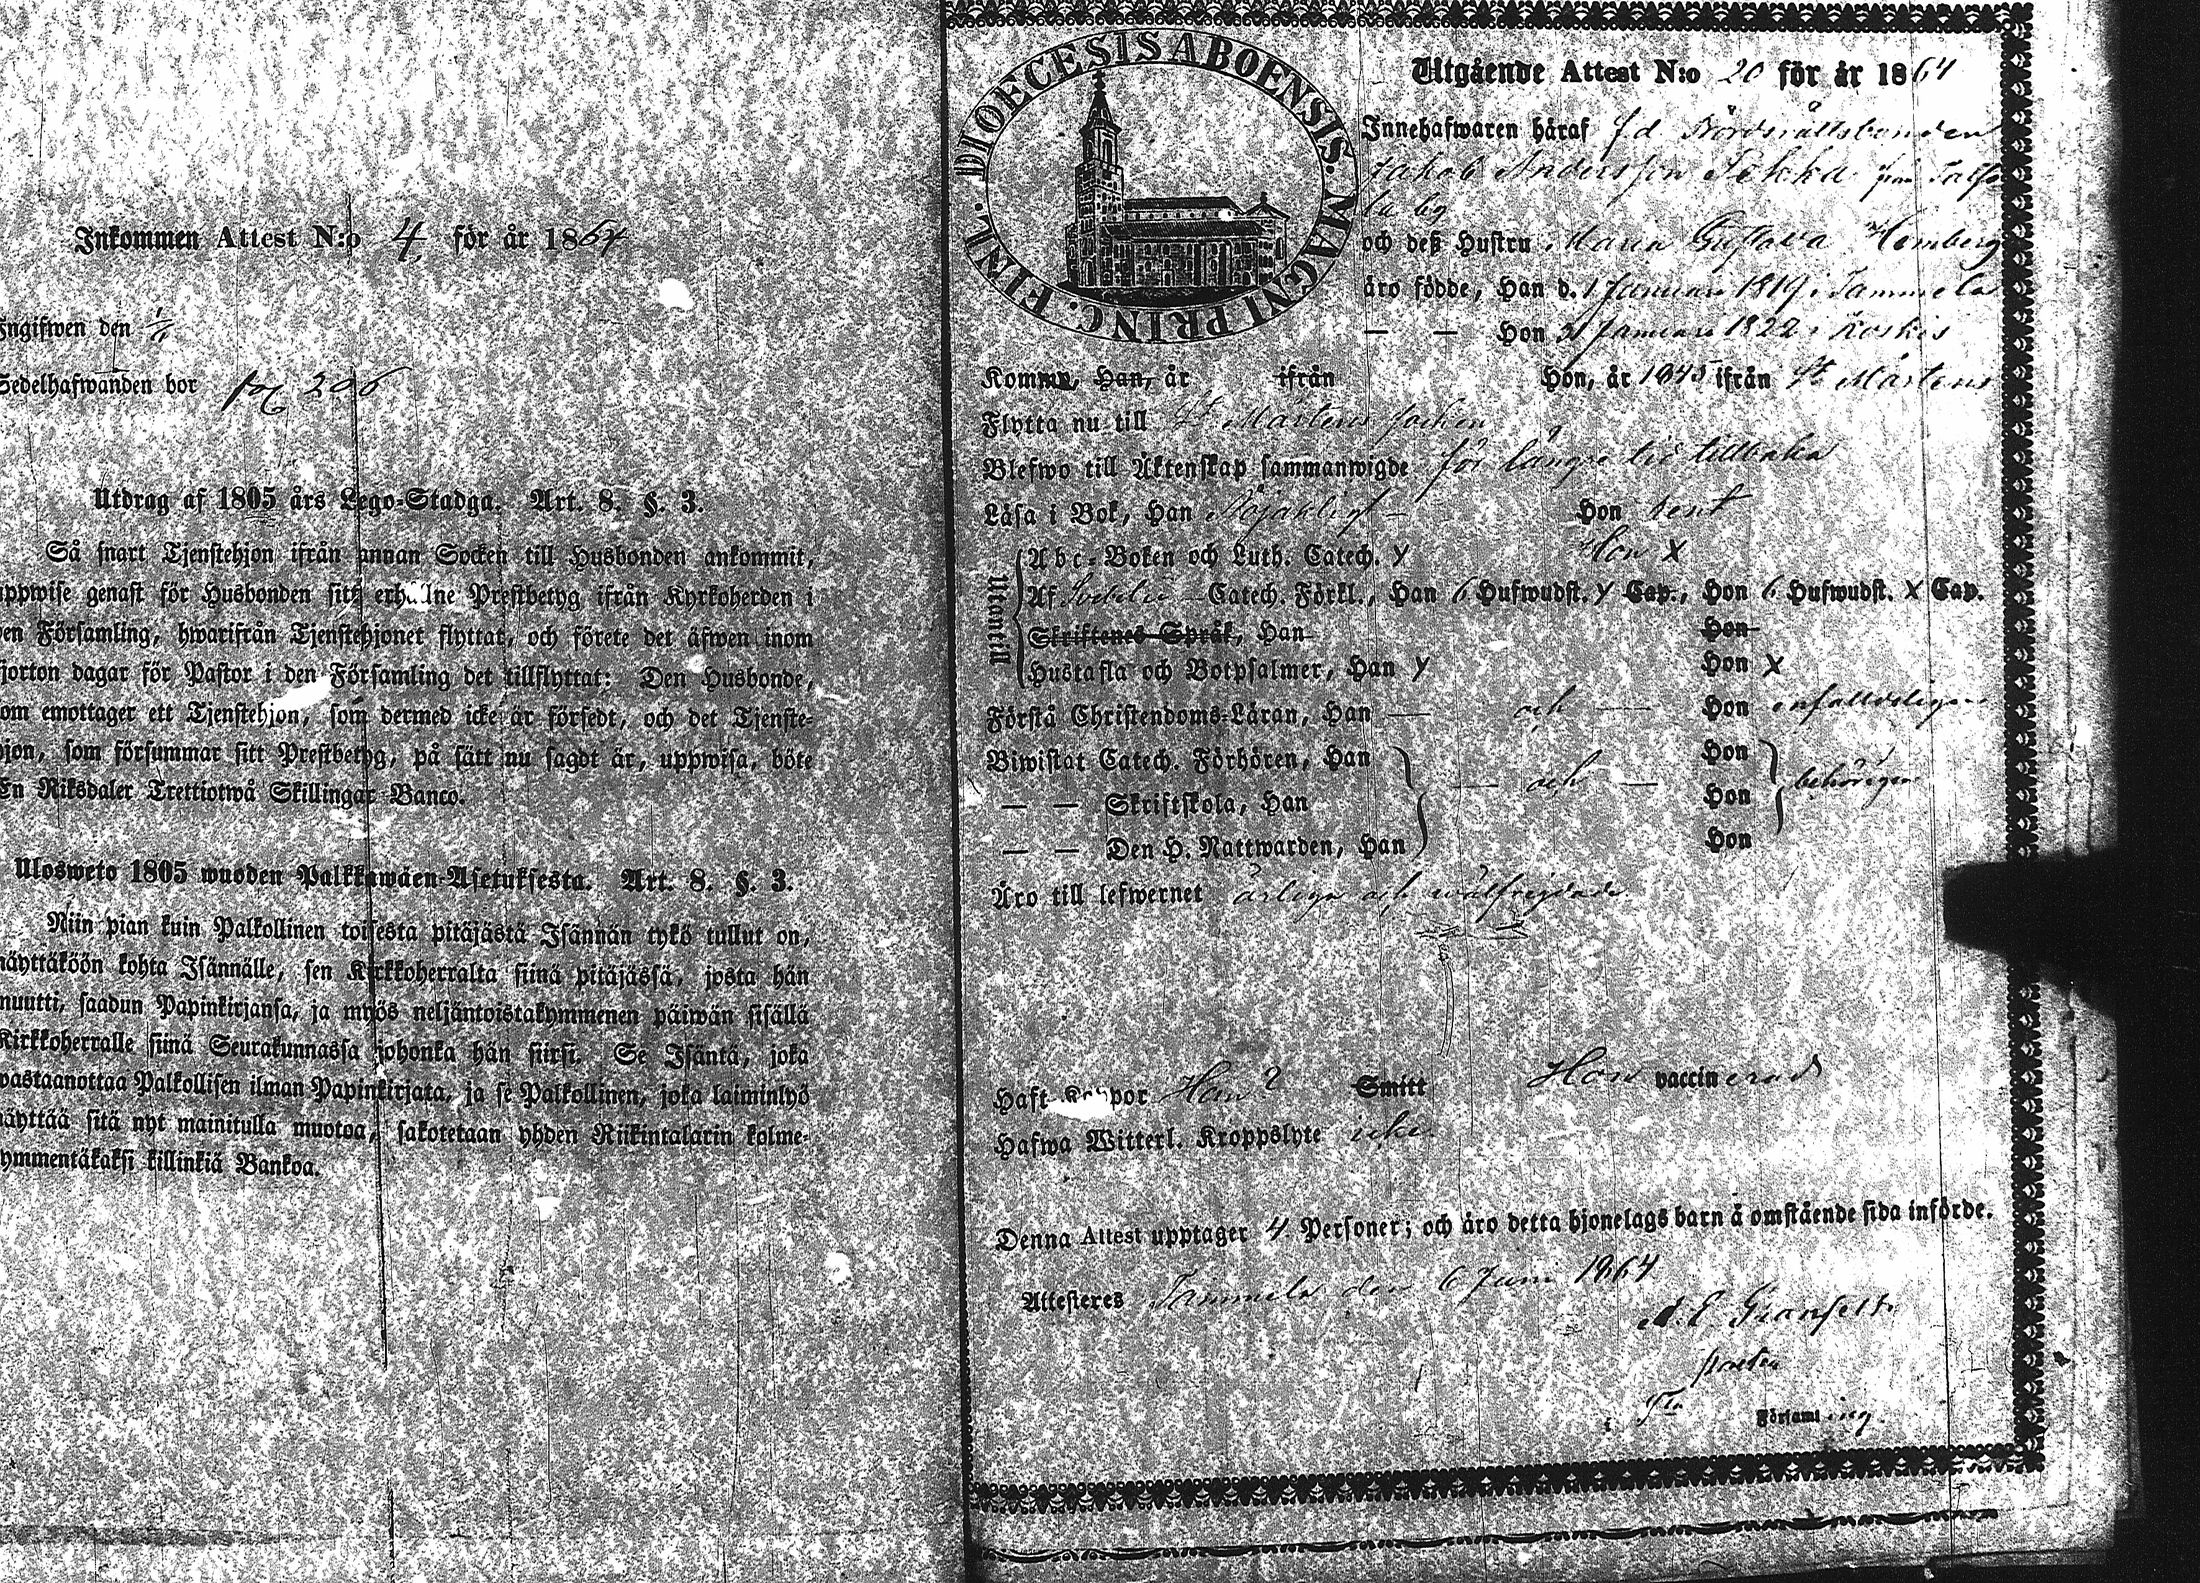 Inkommen Attest N:o 4 för år 1864
Ingifwen den
Sedelhafwanden bor pag 206
Utdrag af 1805 års Lego-Stadga. Art. 8. §. 3.
Så snart Tjenstehjon ifrån annan Socken till Husbonden ankommit,
uppwise genast för Husbonden sitt erhållne Prestbetyg ifrån Kyrkoherden i
den Församling, hwarifrån Tjenstehjonet flyttat, och förete det äfwen inom
fjorton dagar för Pastor i den Församling det tillflyttat: Den Husbonde,
som emottager ett Tjenstehjon, som dermed icke är försedt, och det Tjenste-
hjon, som försummar sitt Prestbetyg, på sätt nu sagdt är, uppwisa, böte
En Riksdaler Trettiotwå Skillingar Banco.
Ulosweto 1805 wuoden Palkkawäen-Asetuksesta. Art. 8. §. 3.
Niin pian kuin Palkollinen toisesta pitäjästä Isännän tykö tullut on,
näyttäköön kohta Isännälle, sen Kirkkoherralta siinä pitäjässä, josta hän
muutti, saadun Papinkirjansa, ja myös neljäntoistakymmenen päiwän sisällä
Kirkkoherralle siinä Seurakunnassa johonka hän siirsi. Se Isäntä, joka
wastaanottaa Palkollisen ilman Papinkirjata, ja se Palkollinen, joka laiminlyö
näyttää sitä nyt mainitulla muotoa, sakotetaan yhden Riikintalarin kolme-
kymmentäkaksi killinkiä Bankoa.
DIOECESIS ABOENSIS. MAGNI PRINC. FINL.
Utgående Attest N:o 20 för år 1864
Innehafwaren häraf f.d.
Jakob Andersson från
by
och deß Hustru Maria Gustava
äro födde, Han d. 1 Januari 1819 i Tammela
— — Hon Januari 1822 i Koskis
Komne, Han, år ifrån Hon, år 1845 ifrån St Mårtens
Flytta nu till St Mårtens socken
Blefwo till Äktenskap sammanwigde för längre tid tillbaka
Läsa i Bok, Han Nöjaktigt Hon
Utantill
Abc-Boken och Luth. Catech. X Hon X
Af Svebelii Catech. Förkl., Han 6 Hufwudst. X Cap., Hon 6 Hufwudst. X Cap.
Skriftenes Språk, Han Hon
Hustafla och Botpsalmer, Han X Hon X
Förstå Christendoms-Läran, Han — och — Hon enfalldeligen
Biwistat Catech. Förhören, Han Hon
— — Skriftskola, Han — och — Hon behörigen
— — Den H. Nattwarden, Han Hon
Äro till lefwernet ärliga och wälfrejdade
Haft Koppor Han Smitt Hon vaccinerad
Hafwa Witterl. Kroppslyte icke
Denna Attest upptager 4 Personer; och äro detta hjonelags barn å omstående sida införde.
Attesteres Tammela den 6 Juni 1864
A. E. Granfelt
Församling